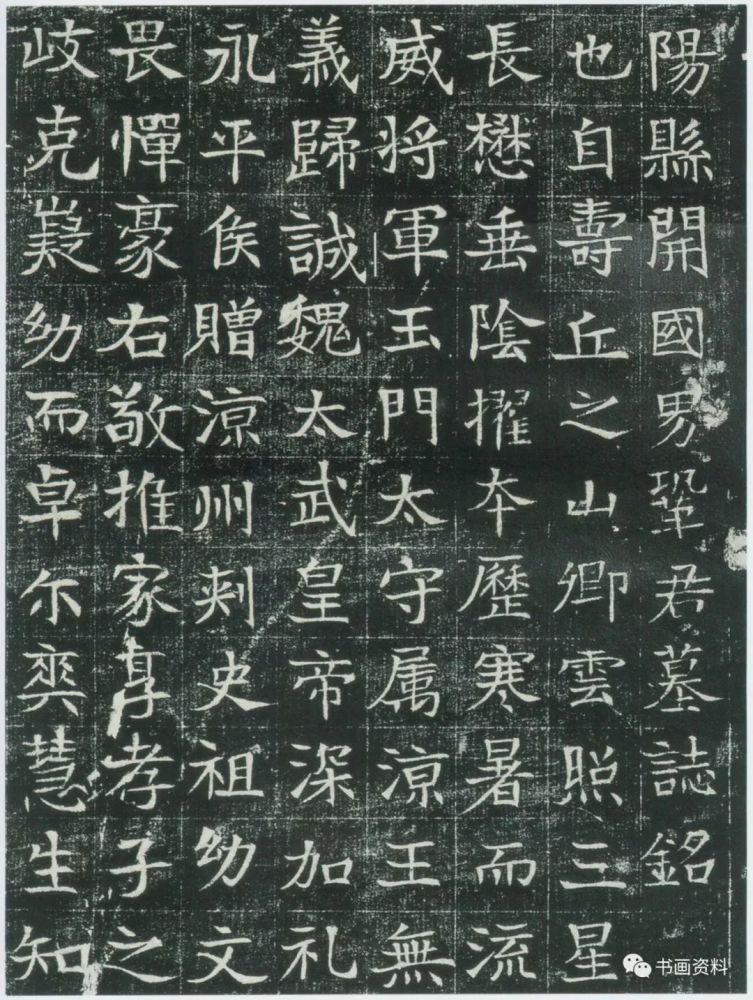 陽縣開國男鞏君墓誌銘
也自壽丘之山卿雲照三星
長懋垂陰擢本歷寒暑而流
威将軍玉門太守属涼王無
義歸誠魏太武皇帝深加礼
永平侯贈涼州刾史祖幼文
畏憚豪右敬推家享孝子之
岐克嶷幼而卓尔奕慧生知
书画资料